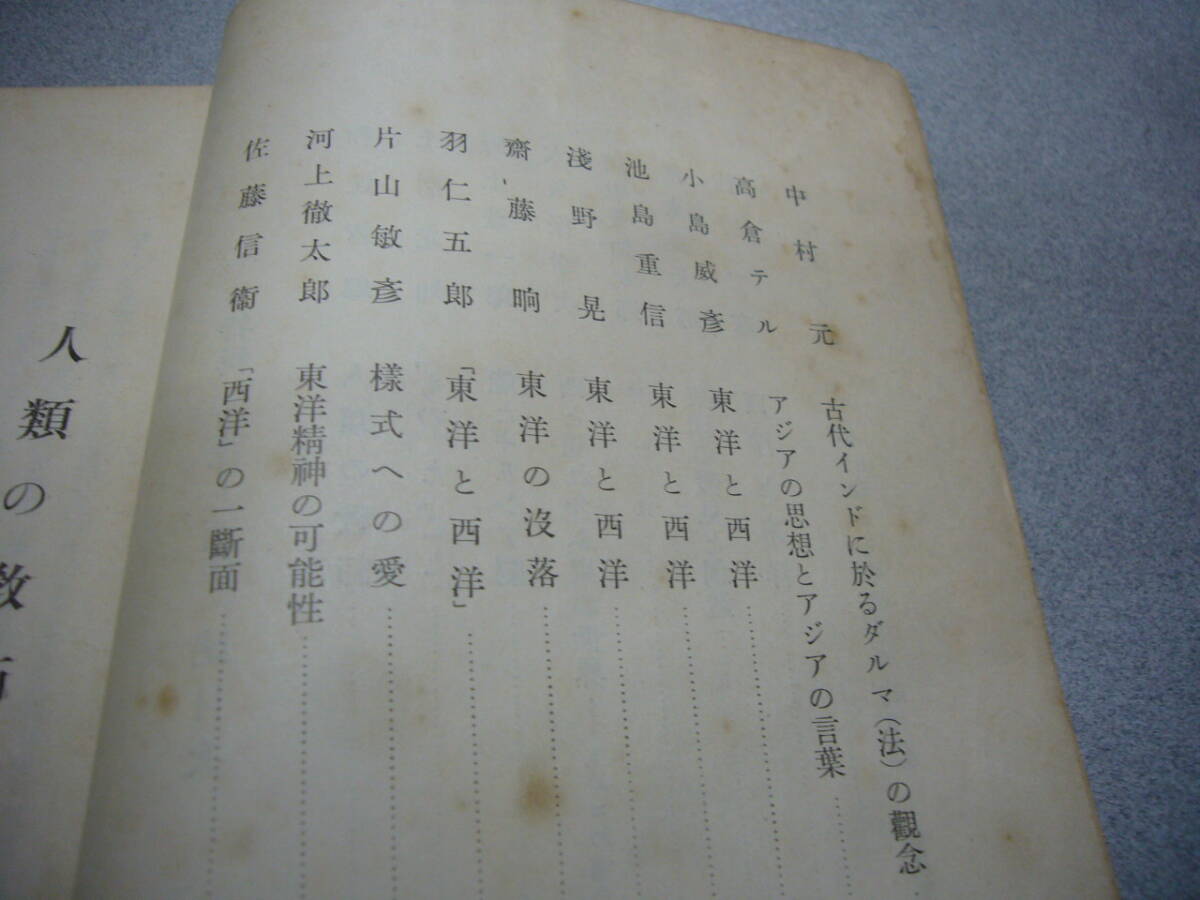 中村元 古代インドに於るダルマ(法)の觀念
高倉テル アジアの思想とアジアの言葉
小島威彥 東洋と西洋
池島重信 東洋と西洋
淺野晃 東洋と西洋
齋藤晌 東洋の沒落
羽仁五郎 「東洋と西洋」
片山敏彥 樣式への愛
河上徹太郎 東洋精神の可能性
佐藤信衞 「西洋」の一斷面
人類の教